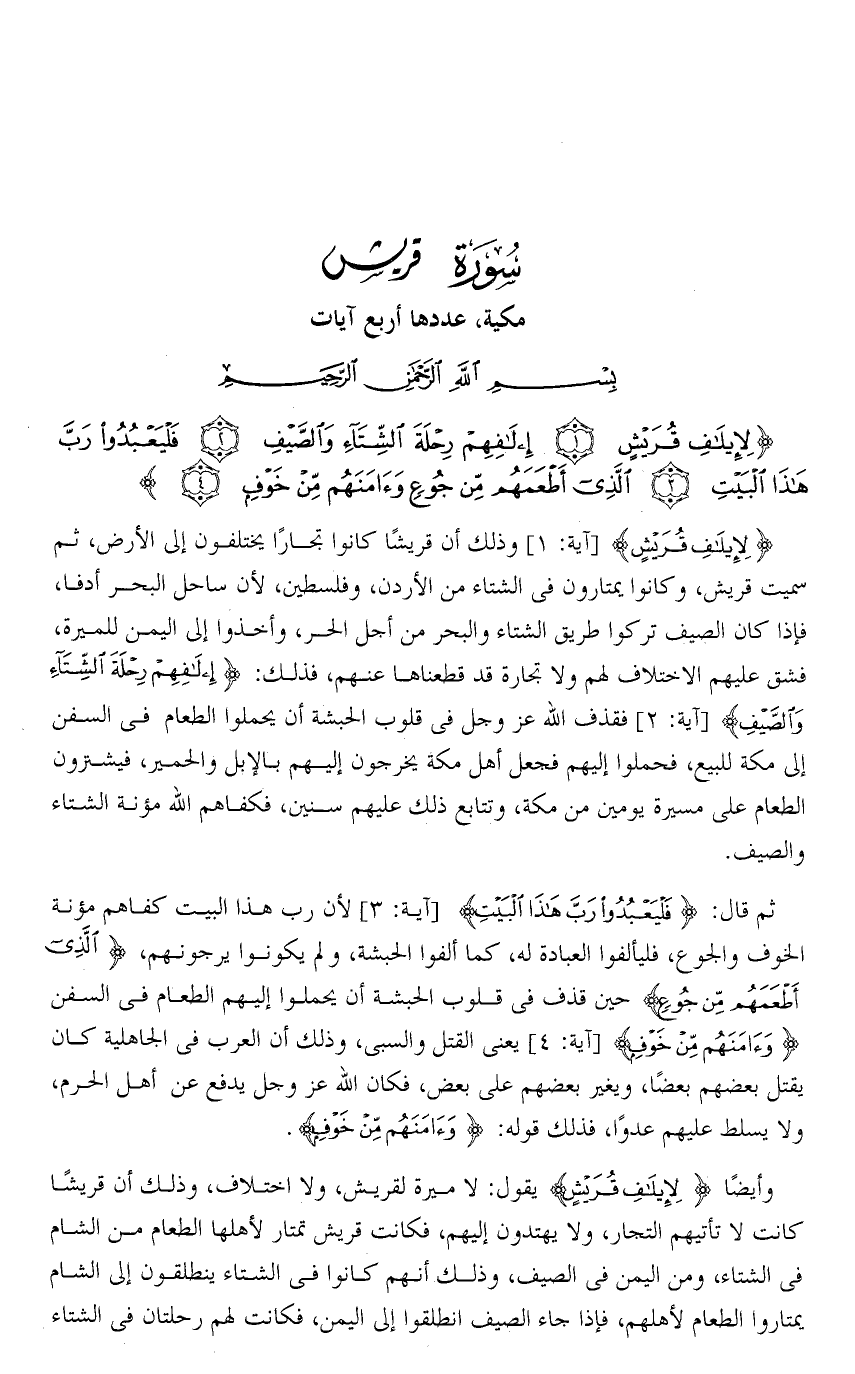 سُورَة قريش
مكية، عددها أربع آيات
بِسْمِ ٱللَّهِ ٱلرَّحْمَٰنِ ٱلرَّحِيمِ
﴿ لِإِيلَٰفِ قُرَيْشٍ ١ إِۦلَٰفِهِمْ رِحْلَةَ ٱلشِّتَآءِ وَٱلصَّيْفِ ٢ فَلْيَعْبُدُوا۟ رَبَّ
هَٰذَا ٱلْبَيْتِ ٣ ٱلَّذِىٓ أَطْعَمَهُم مِّن جُوعٍ وَءَامَنَهُم مِّنْ خَوْفٍۭ ٤ ﴾
﴿ لِإِيلَٰفِ قُرَيْشٍ﴾ [آية: ١] وذلك أن قريشًا كانوا تجارًا يختلفون إلى الأرض، ثم
سميت قريش، وكانوا يمتارون فى الشتاء من الأردن، وفلسطين، لأن ساحل البحر أدفا،
فإذا كان الصيف تركوا طريق الشتاء والبحر من أجل الحر، وأخذوا إلى اليمن للميرة،
فشق عليهم الاختلاف لهم ولا تجارة قد قطعناها عنهم، فذلك: ﴿ إِۦلَٰفِهِمْ رِحْلَةَ ٱلشِّتَآءِ
وَٱلصَّيْفِ﴾ [آية: ٢] فقذف الله عز وجل فى قلوب الحبشة أن يحملوا الطعام فى السفن
إلى مكة للبيع، فحملوا إليهم فجعل أهل مكة يخرجون إليهم بالإبل والحمير، فيشترون
الطعام على مسيرة يومين من مكة، وتتابع ذلك عليهم سنين، فكفاهم الله مؤنة الشتاء
والصيف.
ثم قال: ﴿ فَلْيَعْبُدُوا۟ رَبَّ هَٰذَا ٱلْبَيْتِ﴾ [آية: ٣] لأن رب هذا البيت كفاهم مؤنة
الخوف والجوع، فليألفوا العبادة له، كما ألفوا الحبشة، ولم يكونوا يرجونهم، ﴿ ٱلَّذِىٓ
أَطْعَمَهُم مِّن جُوعٍ﴾ حين قذف فى قلوب الحبشة أن يحملوا إليهم الطعام فى السفن
﴿ وَءَامَنَهُم مِّنْ خَوْفٍۭ﴾ [آية: ٤] يعنى القتل والسبى، وذلك أن العرب فى الجاهلية كان
يقتل بعضهم بعضًا، ويغير بعضهم على بعض، فكان الله عز وجل يدفع عن أهل الحرم،
ولا يسلط عليهم عدوًا، فذلك قوله: ﴿ وَءَامَنَهُم مِّنْ خَوْفٍۭ﴾ .
وأيضًا ﴿ لِإِيلَٰفِ قُرَيْشٍ﴾ يقول: لا ميرة لقريش، ولا اختلاف، وذلك أن قريشًا
كانت لا تأتيهم التجار، ولا يهتدون إليهم، فكانت قريش تمتار لأهلها الطعام من الشام
فى الشتاء، ومن اليمن فى الصيف، وذلك أنهم كانوا فى الشتاء ينطلقون إلى الشام
يمتاروا الطعام لأهلهم، فإذا جاء الصيف انطلقوا إلى اليمن، فكانت لهم رحلتان فى الشتاء